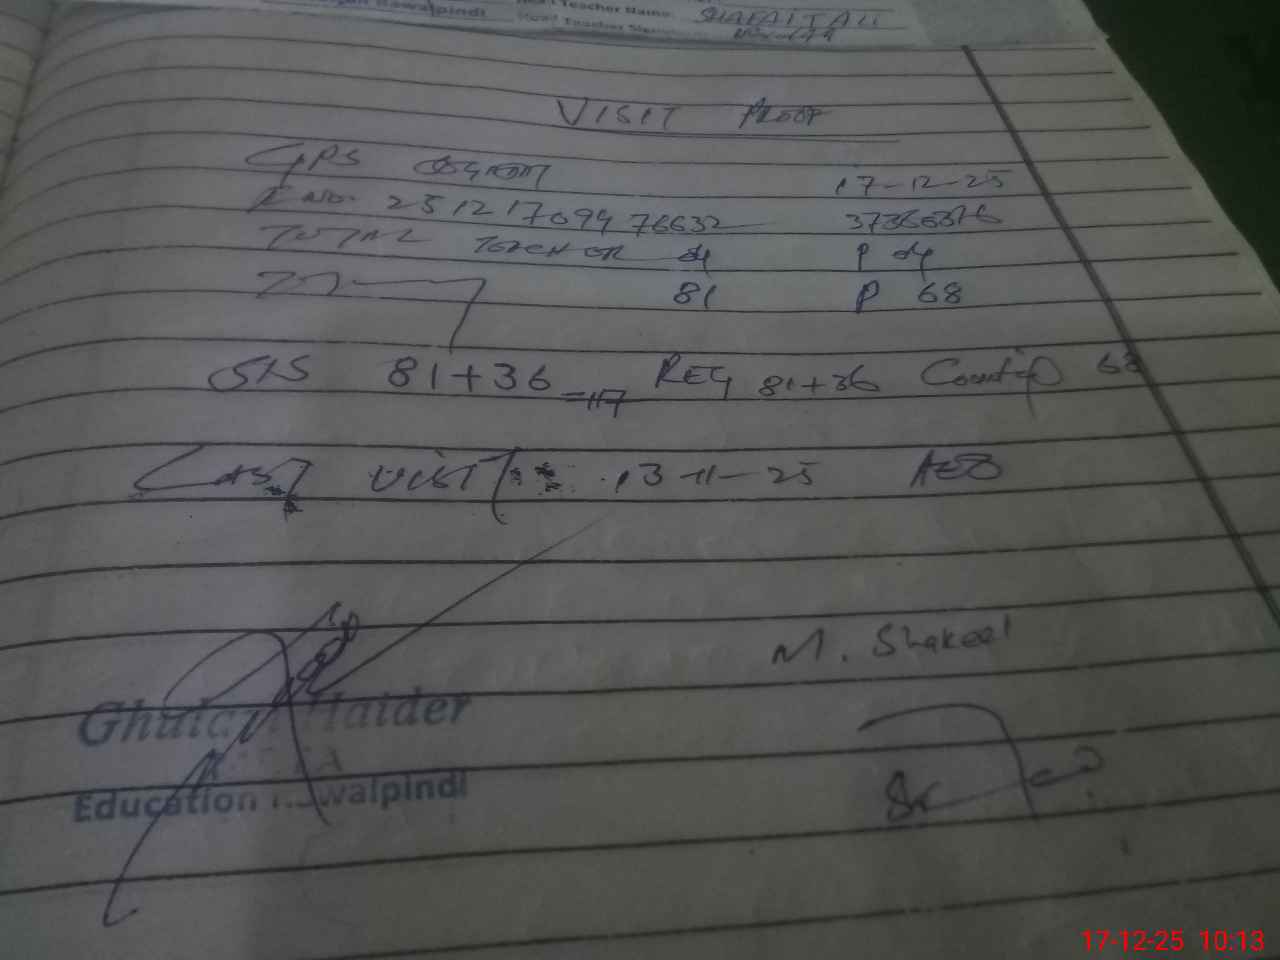 Rawalpindi
Teacher Name
SHAFAIT ALI
Head Teacher
VISIT PROOF
GPS 17-12-25
E No. 25121709476632 37366376
TOTAL TEACHER 04 P 04
81 P 68
SIS 81+36 =117 REG 81+36 Counting 68
LAST VISIT 13-11-25 AEO
M. Shakeel
Ghulam Haider
Education Rawalpindi
17-12-25 10:13